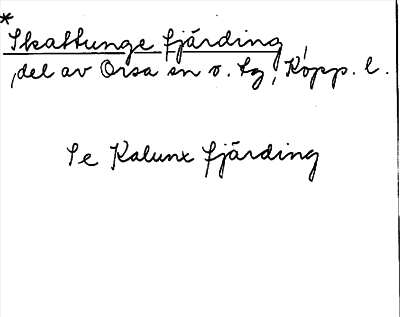 *
Skattunge fjärding,
del av Orsa sn o. tg, Kopp. l.
Se Kalunx fjärding